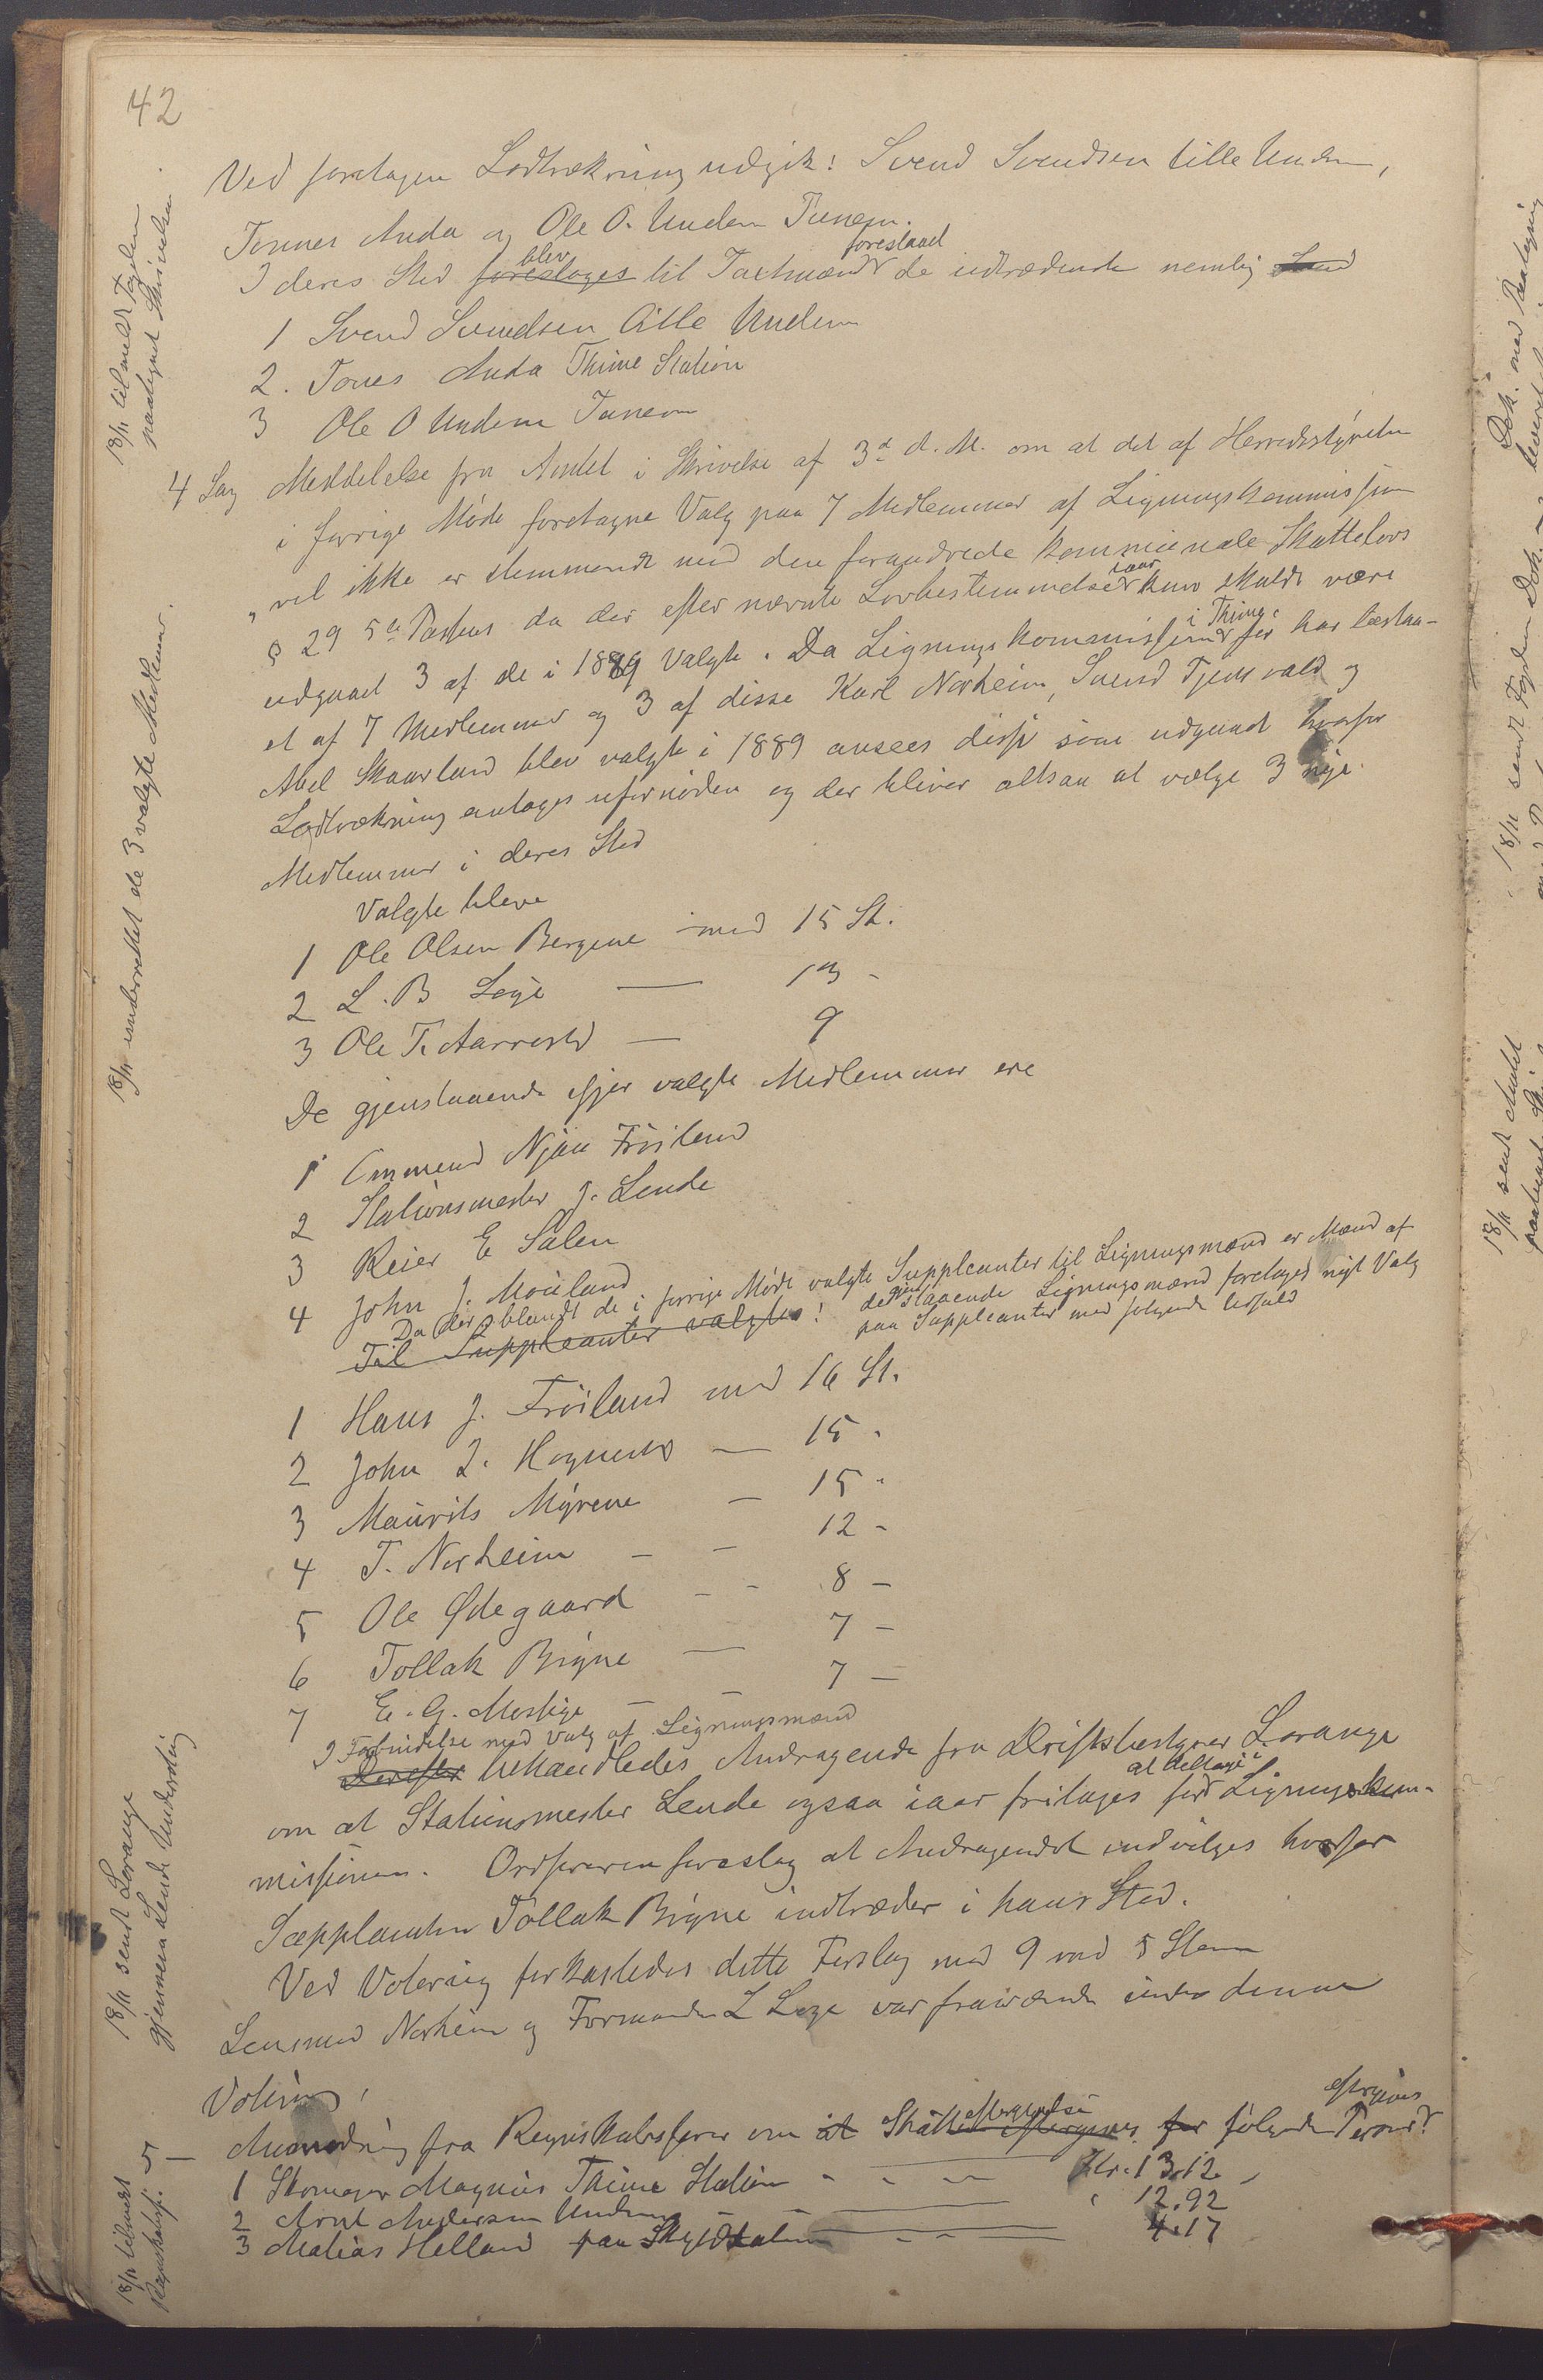 42
Ved foretagen Lodtrækning udgik: Svend Svendsen Lille Undem,
Tønnes Anda og Ole O. Undem Tunem.
I deres Sted foreslages blev til Taxtmænd foreslaaet de udtrædende nemlig Svend
1 Svend Svendsen Lille Undem
2. Tønes Anda Thime Station
3 Ole O Undem Tunem
18/11 tilmeldt Fogden
paategnet Skrivelsen
4 Sag Meddelelse fra Amtet i Skrivelse af 3d d. M. om at det af Herredsstyrelsen
i forrige Møde foretagne Valg paa 7 Medlemmer af Ligningskommissjon
vel ikke er stemmende med den forandrede kommunale Skattelovs
§ 29 5te Passus da der efter nævnte Lovbestemmelser iaar kun skulde være
udgaaet 3 af de i 1889 Valgte. Da Ligningskommissjonen i Thime før har bestaa-
et af 7 Medlemmer og 3 af disse Karl Norheim, Svend Tjensvold og
Abel Skaarland blev valgte i 1889 ansees disse som udgaaet hvorfor
Lodtrækning antages ufornøden og der bliver altsaa at vælge 3 nye
Medlemmer i deres Sted
Valgte bleve
18/11 underrettet de 3 valgte Medlemmer.
1 Ole Olsen Bergene med 15 St.
2 L. B Lege — 13 -
3 Ole T. Aarrestad — 9
De gjenstaaende ifjor valgte Medlemmer ere
1 Ommund Njaa Frøiland
2 Stationsmester J. Lende
3 Reier E Salen
4 John J. Møiland
Da der blandt de i forrige Møde valgte Suppleanter til Ligningsmænd er Mænd af
de gjenstaaende Ligningsmænd foretages nyt Valg
paa Suppleanter med følgende Udfald
Til Suppleanter valgtes:
1 Hans J. Frøiland med 16 St.
2 John L. Hognestad — 15 -
3 Maurits Myrene — 15 -
4 T. Norheim - - 12 -
5 Ole Ødegaard - - 8 -
6 Tollak Bryne — 7 -
7 E. G. Mossige - - 7 —
I Forbindelse med Valg af Ligningsmænd
Derefter behandledes Andragende fra Driftsbestyrer Lorange
om at Stationsmester Lende ogsaa iaar fritages for at deltage i Ligningskom-
missionen. Ordføreren foreslog at Andragendet indvilges hvorfor
Suppleanten Tollak Bryne indtræder i hans Sted.
Ved Votering forkastedes dette Forslag med 9 mod 5 Stem
Lensmand Norheim og Formanden L Lege var fraværende under denne
Votering.
18/11 sendt Lorange
gjennem Lende Underretning
5 Anmodning fra Regnskabsfører om at Skatteeftergivelse eftergives for følgende Personer eftergives
1 Skomager Magnus Thime Station - - - Kr. 13.12
2 Arnt Andersen Undem — " 12.92
3 Matias Helland paa Skydsstation - - — 4.17
18/11 tilmeldt
Regnskabsf.